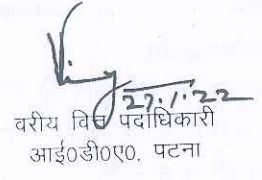 27.1.22
वरीय वित्त पदाधिकारी
आई०डी०ए०, पटना